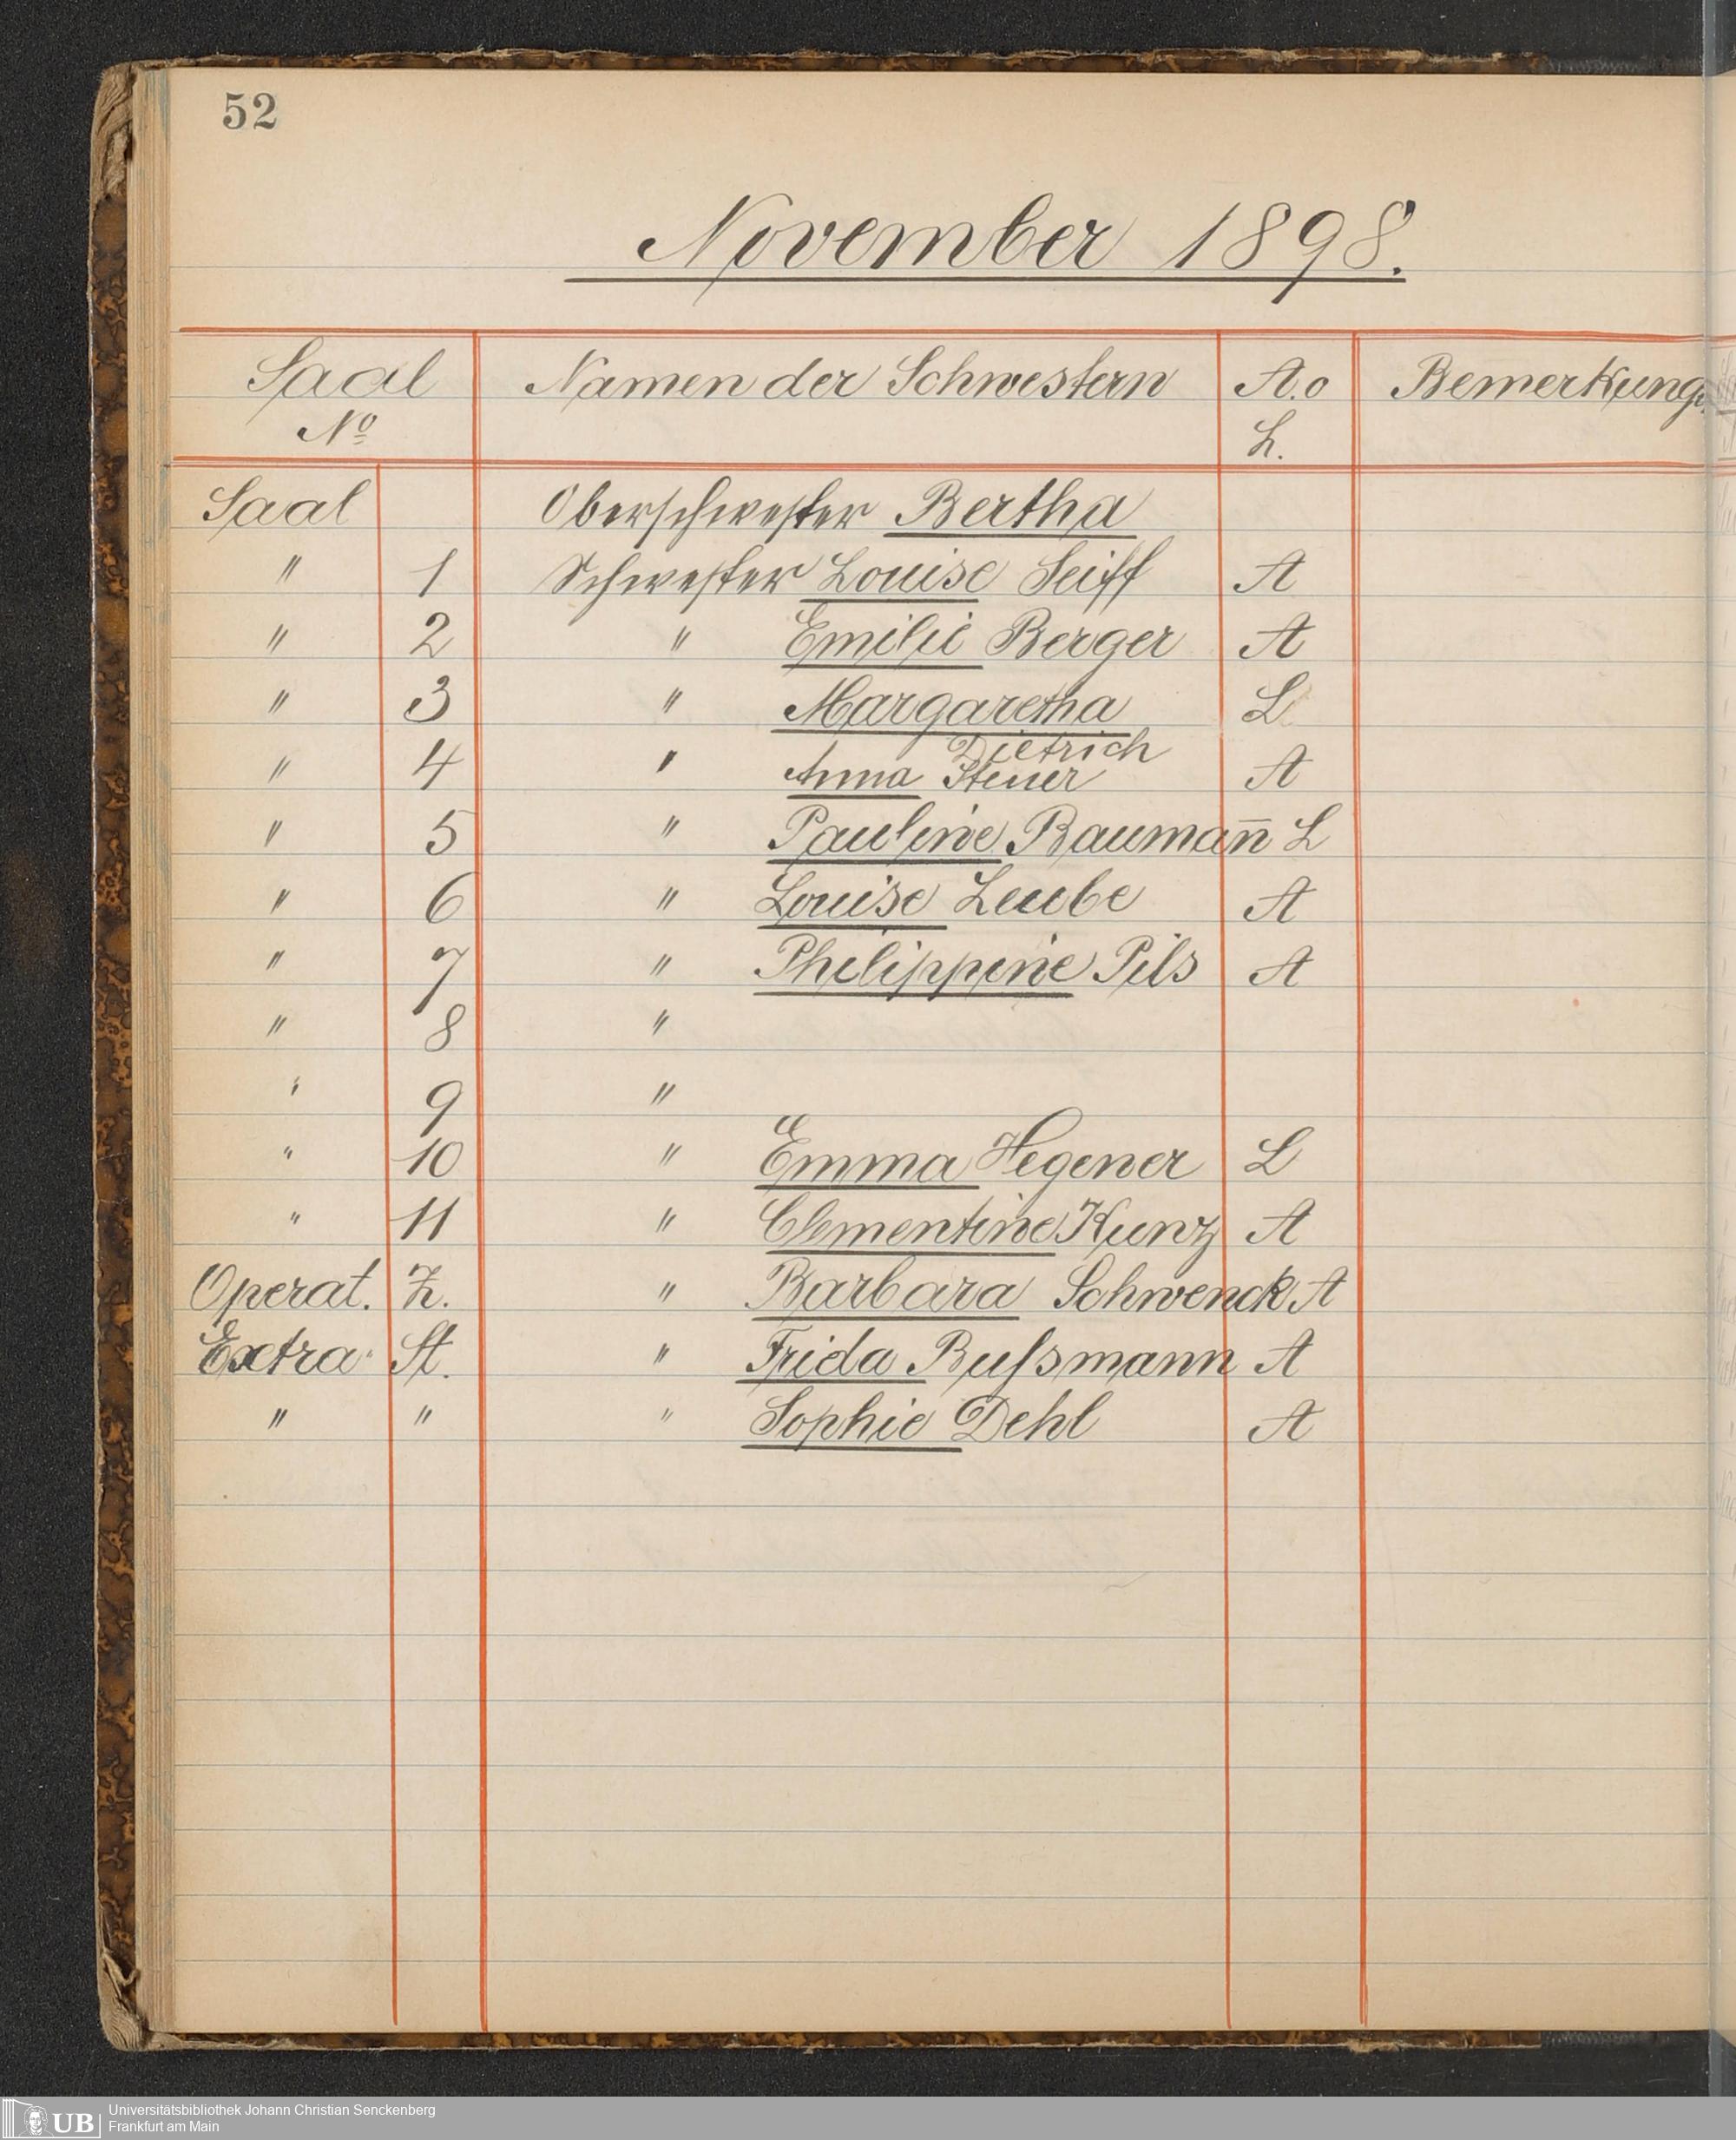 52
November 1898.
Saal Namen der Schwestern A. o Bemerkung.
No L.
Saal Oberschwester Bertha
" 1 Schwester Louise Seiff A
" 2 " Emilie Berger A
" 3 " Margaretha L
Dietrich
" 4 " Anna Steuer A
" 5 " Pauline Bauman̅ L
" 6 " Louise Leube A
" 7 " Philippine Pils A
" 8 "
" 9 "
" 10 " Emma Hegener L
" 11 " Clementine Kunz A
Operat. Z. " Barbara Schwenck A
Extra St. " Frida Bußmann A
" " " Sophie Dehl A
UB Universitätsbibliothek Johann Christian Senckenberg
Frankfurt am Main